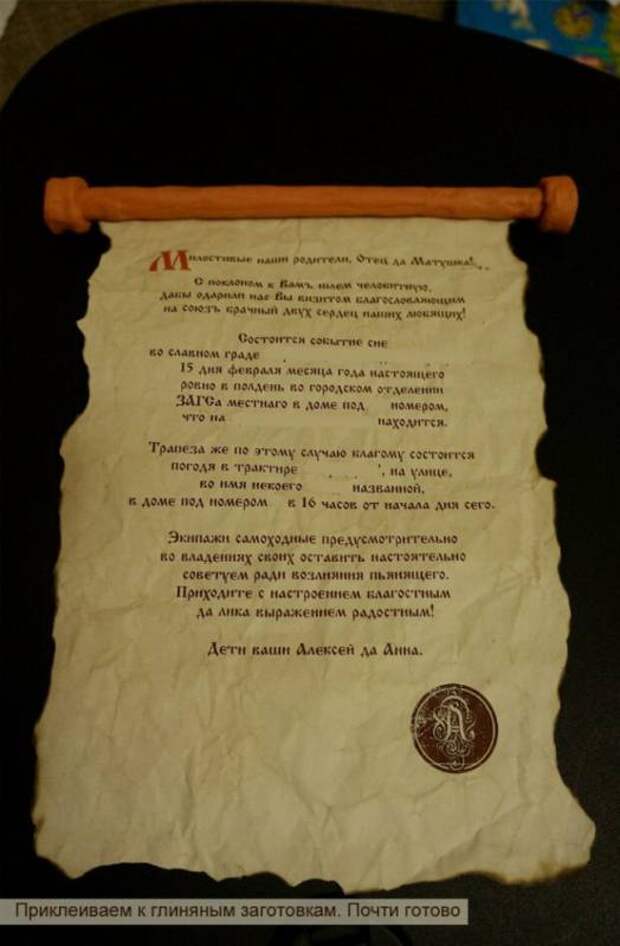 Милостивые наши родители, Отец да Матушка!..
С поклоном к Вамъ шлем челобитную,
дабы одарили нас Вы визитом благословляющим
на союзъ брачный двух сердец наших любящих!
Состоится событие сие
во славном граде
15 дня февраля месяца года настоящего
ровно в полдень во городском отделении
ЗАГСа местнаго в доме под номером,
что на находится.
Трапеза же по этому случаю благому состоится
погодя в трактире ', на улице,
во имя некоего названной,
в доме под номером в 16 часов от начала дня сего.
Экипажи самоходные предусмотрительно
во владениях своих оставить настоятельно
советуем ради возлияния пьянящего.
Приходите с настроением благостным
да лика выражением радостным!
Дети ваши Алексей да Анна.
А
Приклеиваем к глиняным заготовкам. Почти готово